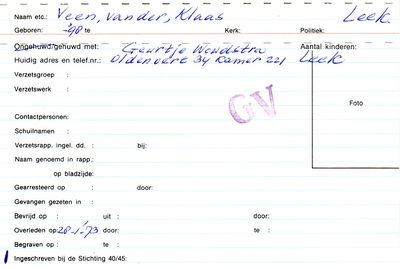 Naam etc.: Veen, van der, Klaas Leek.
Geboren: -'98 te Kerk: Politiek:
Ongehuwd/gehuwd met: Geurtje Woudstra Aantal kinderen:
Huidig adres en telef.nr.: Oldenoert 34 Kamer 221 Leek
Verzetsgroep :
Verzetswerk :
GV
Foto
Contactpersonen:
Schuilnamen :
Verzetsrapp. ingel. dd. : bij:
Naam genoemd in rapp.:
op bladzijde:
Gearresteerd op : door:
Gevangen gezeten in :
Bevrijd op : uit : door:
Overleden op: 28-1-'73 door: te :
Begraven op : te :
Ingeschreven bij de Stichting 40/45: